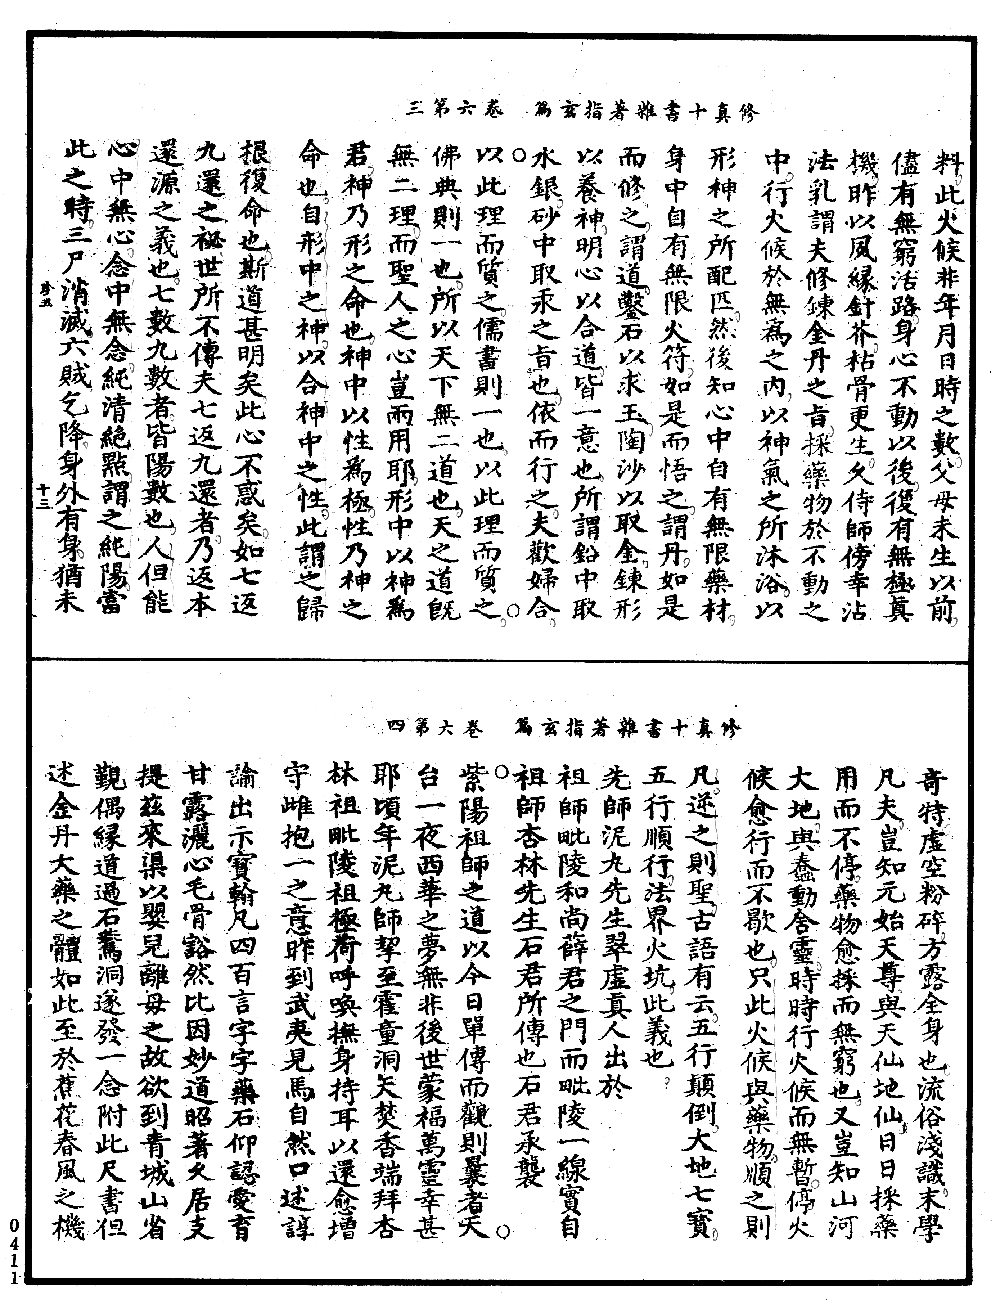 修真十書雜著指玄篇　卷六第三
料此火候非年月日時之數父母未生以前
儘有無窮活路身心不動以後復有無極真
機昨以風緣針芥枯骨更生久侍師傍幸沾
法乳謂夫修鍊金丹之旨採藥物於不動之
中行火候於無為之內以神氣之所沐浴以
形神之所配匹然後知心中自有無限藥材
身中自有無限火符如是而悟之謂丹如是
而修之謂道鑿石以求玉陶沙以取金鍊形
以養神明心以合道皆一意也所謂鉛中取
水銀砂中取汞之旨也依而行之夫歡婦合
○以此理而質之儒書則一也以此理而質之○
佛典則一也所以天下無二道也天之道既
無二理而聖人之心豈兩用耶形中以神為
君神乃形之命也神中以性為極性乃神之
命也自形中之神以合神中之性此謂之歸
根復命也斯道甚明矣此心不惑矣如七返
九還之祕世所不傳夫七返九還者乃返本
還源之義也七數九數者皆陽數也人但能
心中無心念中無念純清絕點謂之純陽當
此之時三尸消滅六賊乞降身外有身猶未
珍五　十三
修真十書雜著指玄篇　卷六第四
奇特虛空粉碎方露全身也流俗淺識末學
凡夫豈知元始天尊與天仙地仙日日採藥
用而不停藥物愈採而無窮也又豈知山河
大地與蠢動含靈時時行火候而無暫停火
候愈行而不歇也只此火候與藥物順之則
凡逆之則聖古語有云五行顛倒大地七寶
五行順行法界火坑此義也
先師泥丸先生翠虛真人出於
祖師毗陵和尚薛君之門而毗陵一線實自
祖師杏林先生石君所傳也石君承襲
○紫陽祖師之道以今日單傳而觀則曩者天○
台一夜西華之夢無非後世蒙福萬靈幸甚
耶頃年泥丸師挈至霍童洞天焚香端拜杏
林祖毗陵祖極荷呼喚撫身持耳以還愈增
守雌抱一之意昨到武夷見馬自然口述諄
諭出示寶翰凡四百言字字藥石仰認愛育
甘露灑心毛骨豁然比因妙道昭著久居支
提茲來渠以嬰兒離母之故欲到青城山省
覲偶緣道過石鶩洞遂發一念附此尺書但
述金丹大藥之體如此至於蕉花春風之機
0411